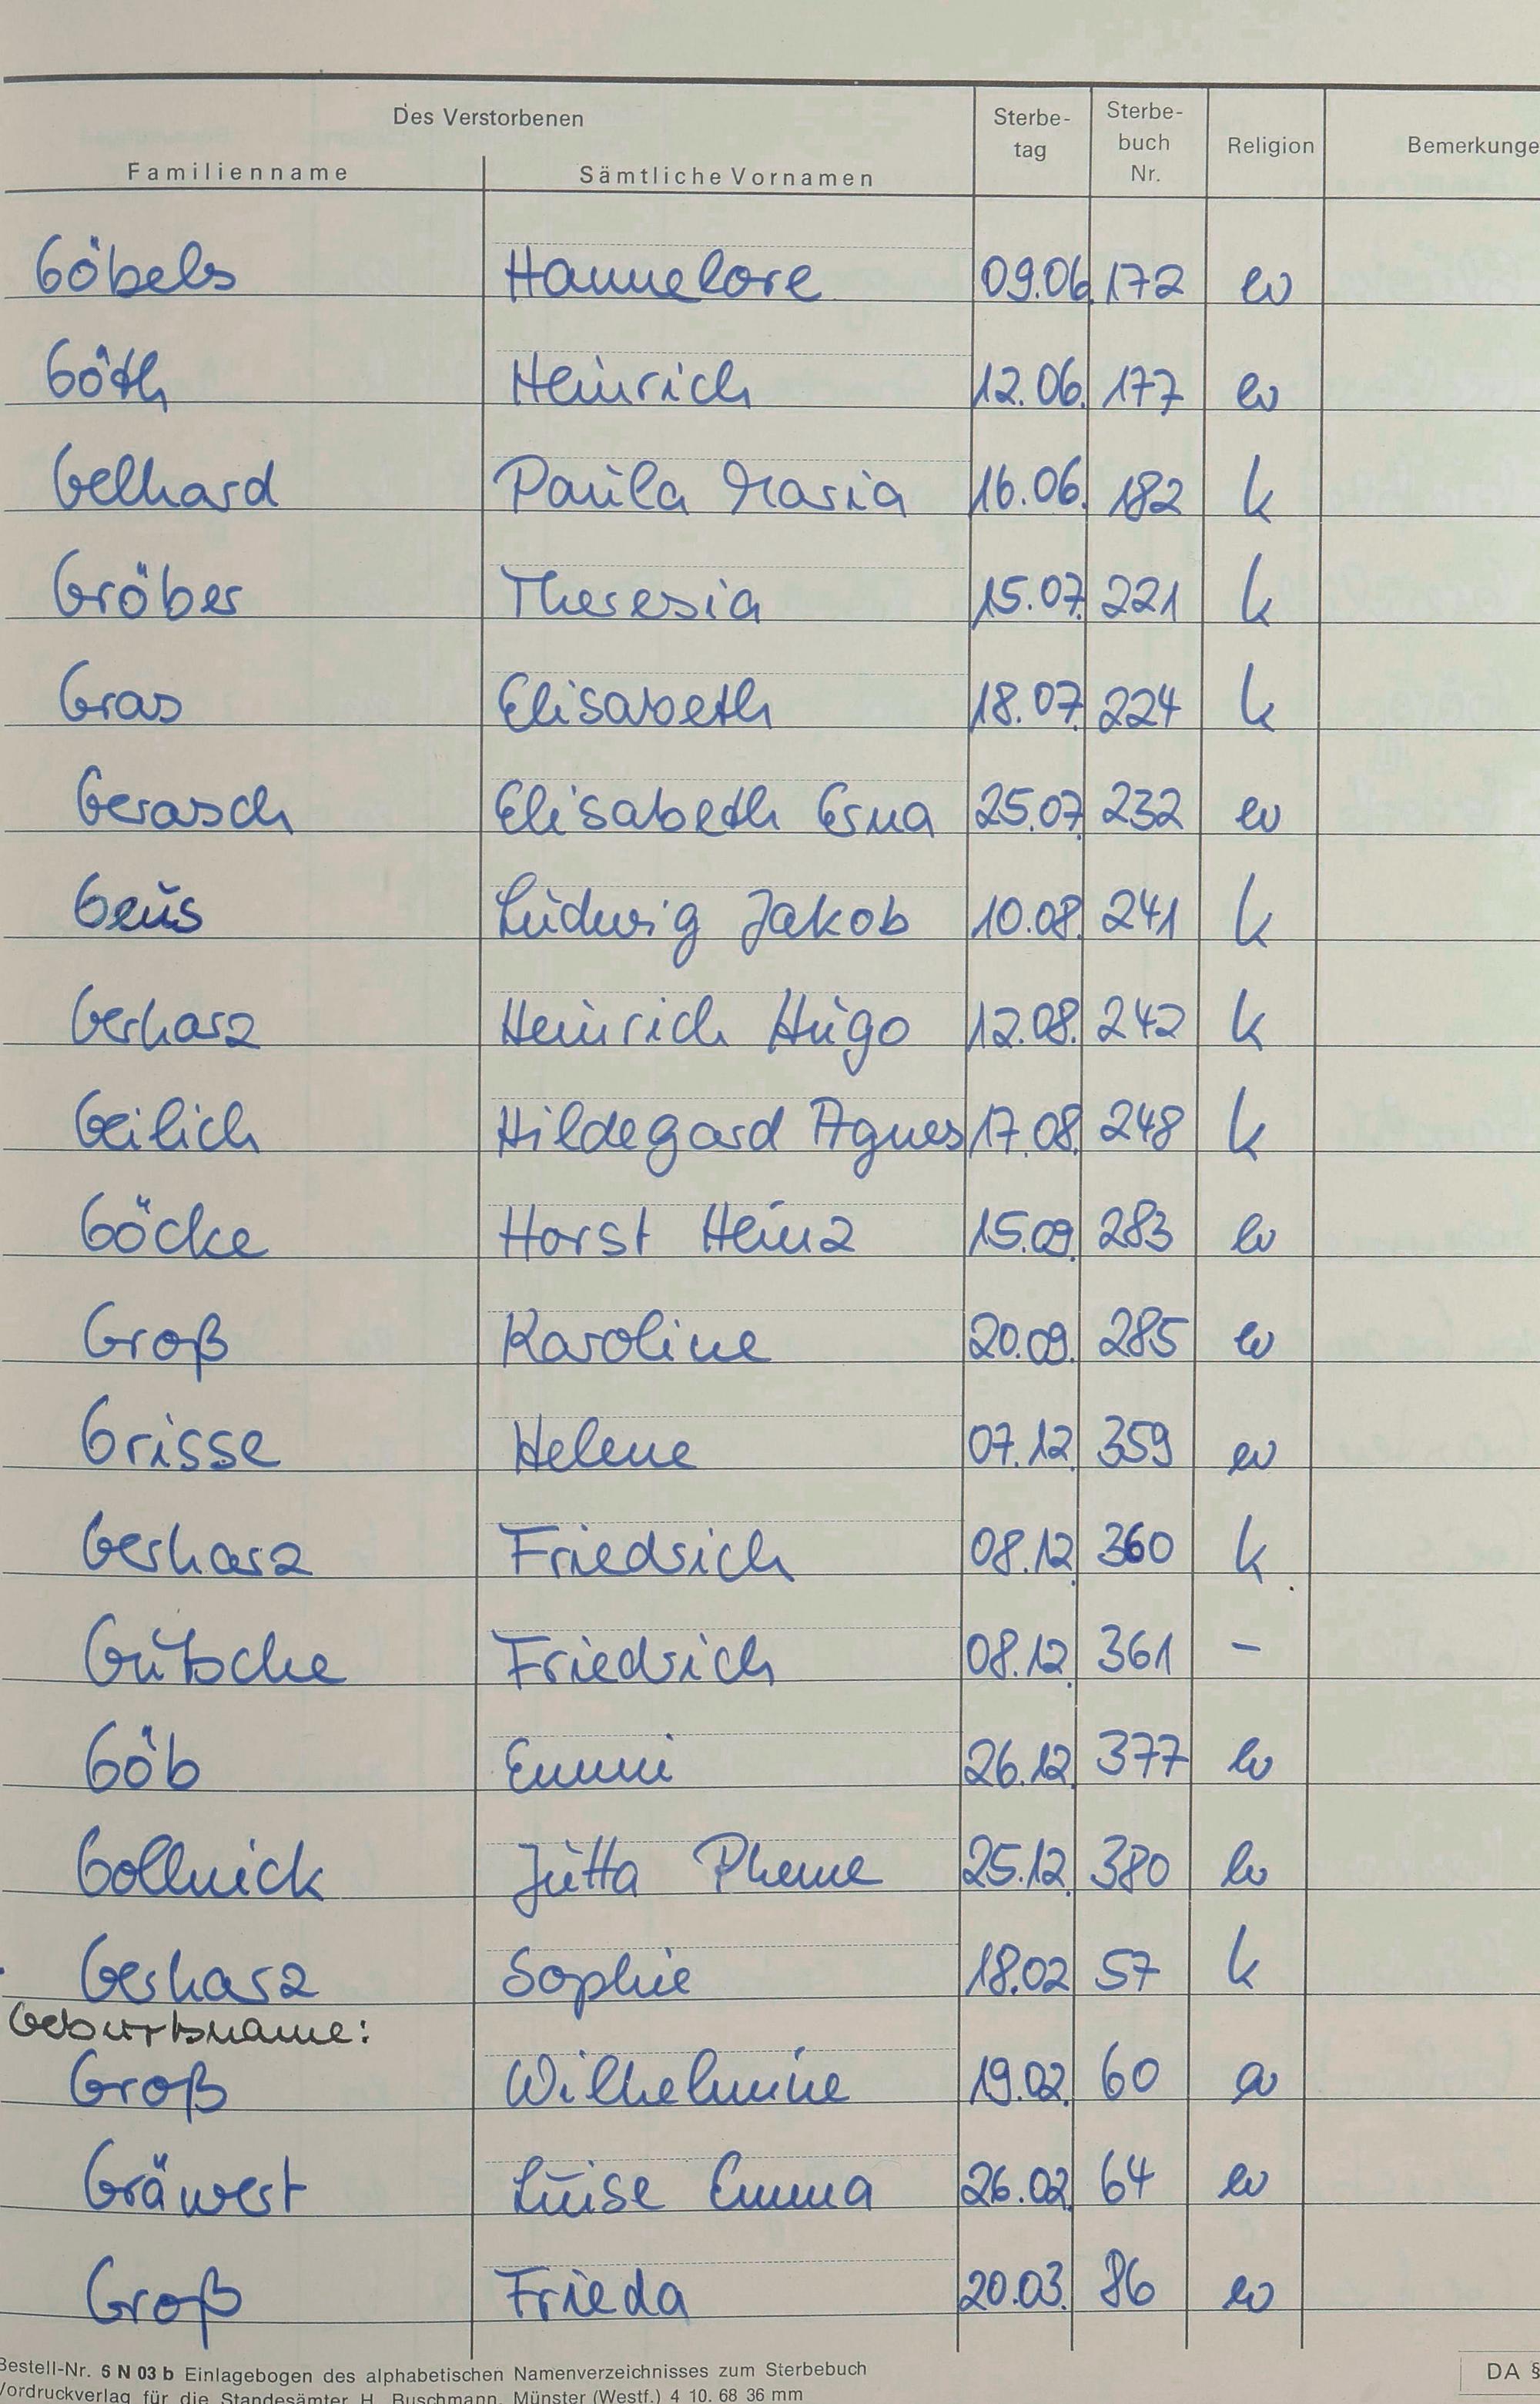 Des Verstorbenen Sterbe- Sterbe- Religion Bemerkunge
tag buch
Familienname Sämtliche Vornamen Nr.
Göbels Hannelore 09.06. 172 ev
Göth Heinrich 12.06. 177 ev
Gelhard Paula Maria 16.06. 182 k
Gröber Theresia 15.07. 221 k
Gras Elisabeth 18.07. 224 k
Gerasch Elisabeth Erna 25.07. 232 ev
Geus Ludwig Jakob 10.08. 241 k
Gerharz Heinrich Hugo 12.08. 242 k
Geilich Hildegard Agnes 17.08. 248 k
Göcke Horst Heinz 15.09. 283 ev
Groß Karoline 20.09. 285 ev
Grisse Helene 07.12. 359 ev
Gerharz Friedrich 08.12. 360 k
Gutsche Friedrich 08.12. 361 –
Göb Emmi 26.12. 377 ev
Gollnick Jutta 25.12. 380 ev
Gerharz Sophie 18.02 57 k
Geburtsname:
Groß Wilhelmine 19.02. 60 ev
Gräwert Luise Emma 26.02. 64 ev
Groß Frieda 20.03. 86 ev
Bestell-Nr. 5 N 03 b Einlagebogen des alphabetischen Namenverzeichnisses zum Sterbebuch DA §
Vordruckverlag für die Standesämter H. Buschmann, Münster (Westf.) 4 10. 68 36 mm